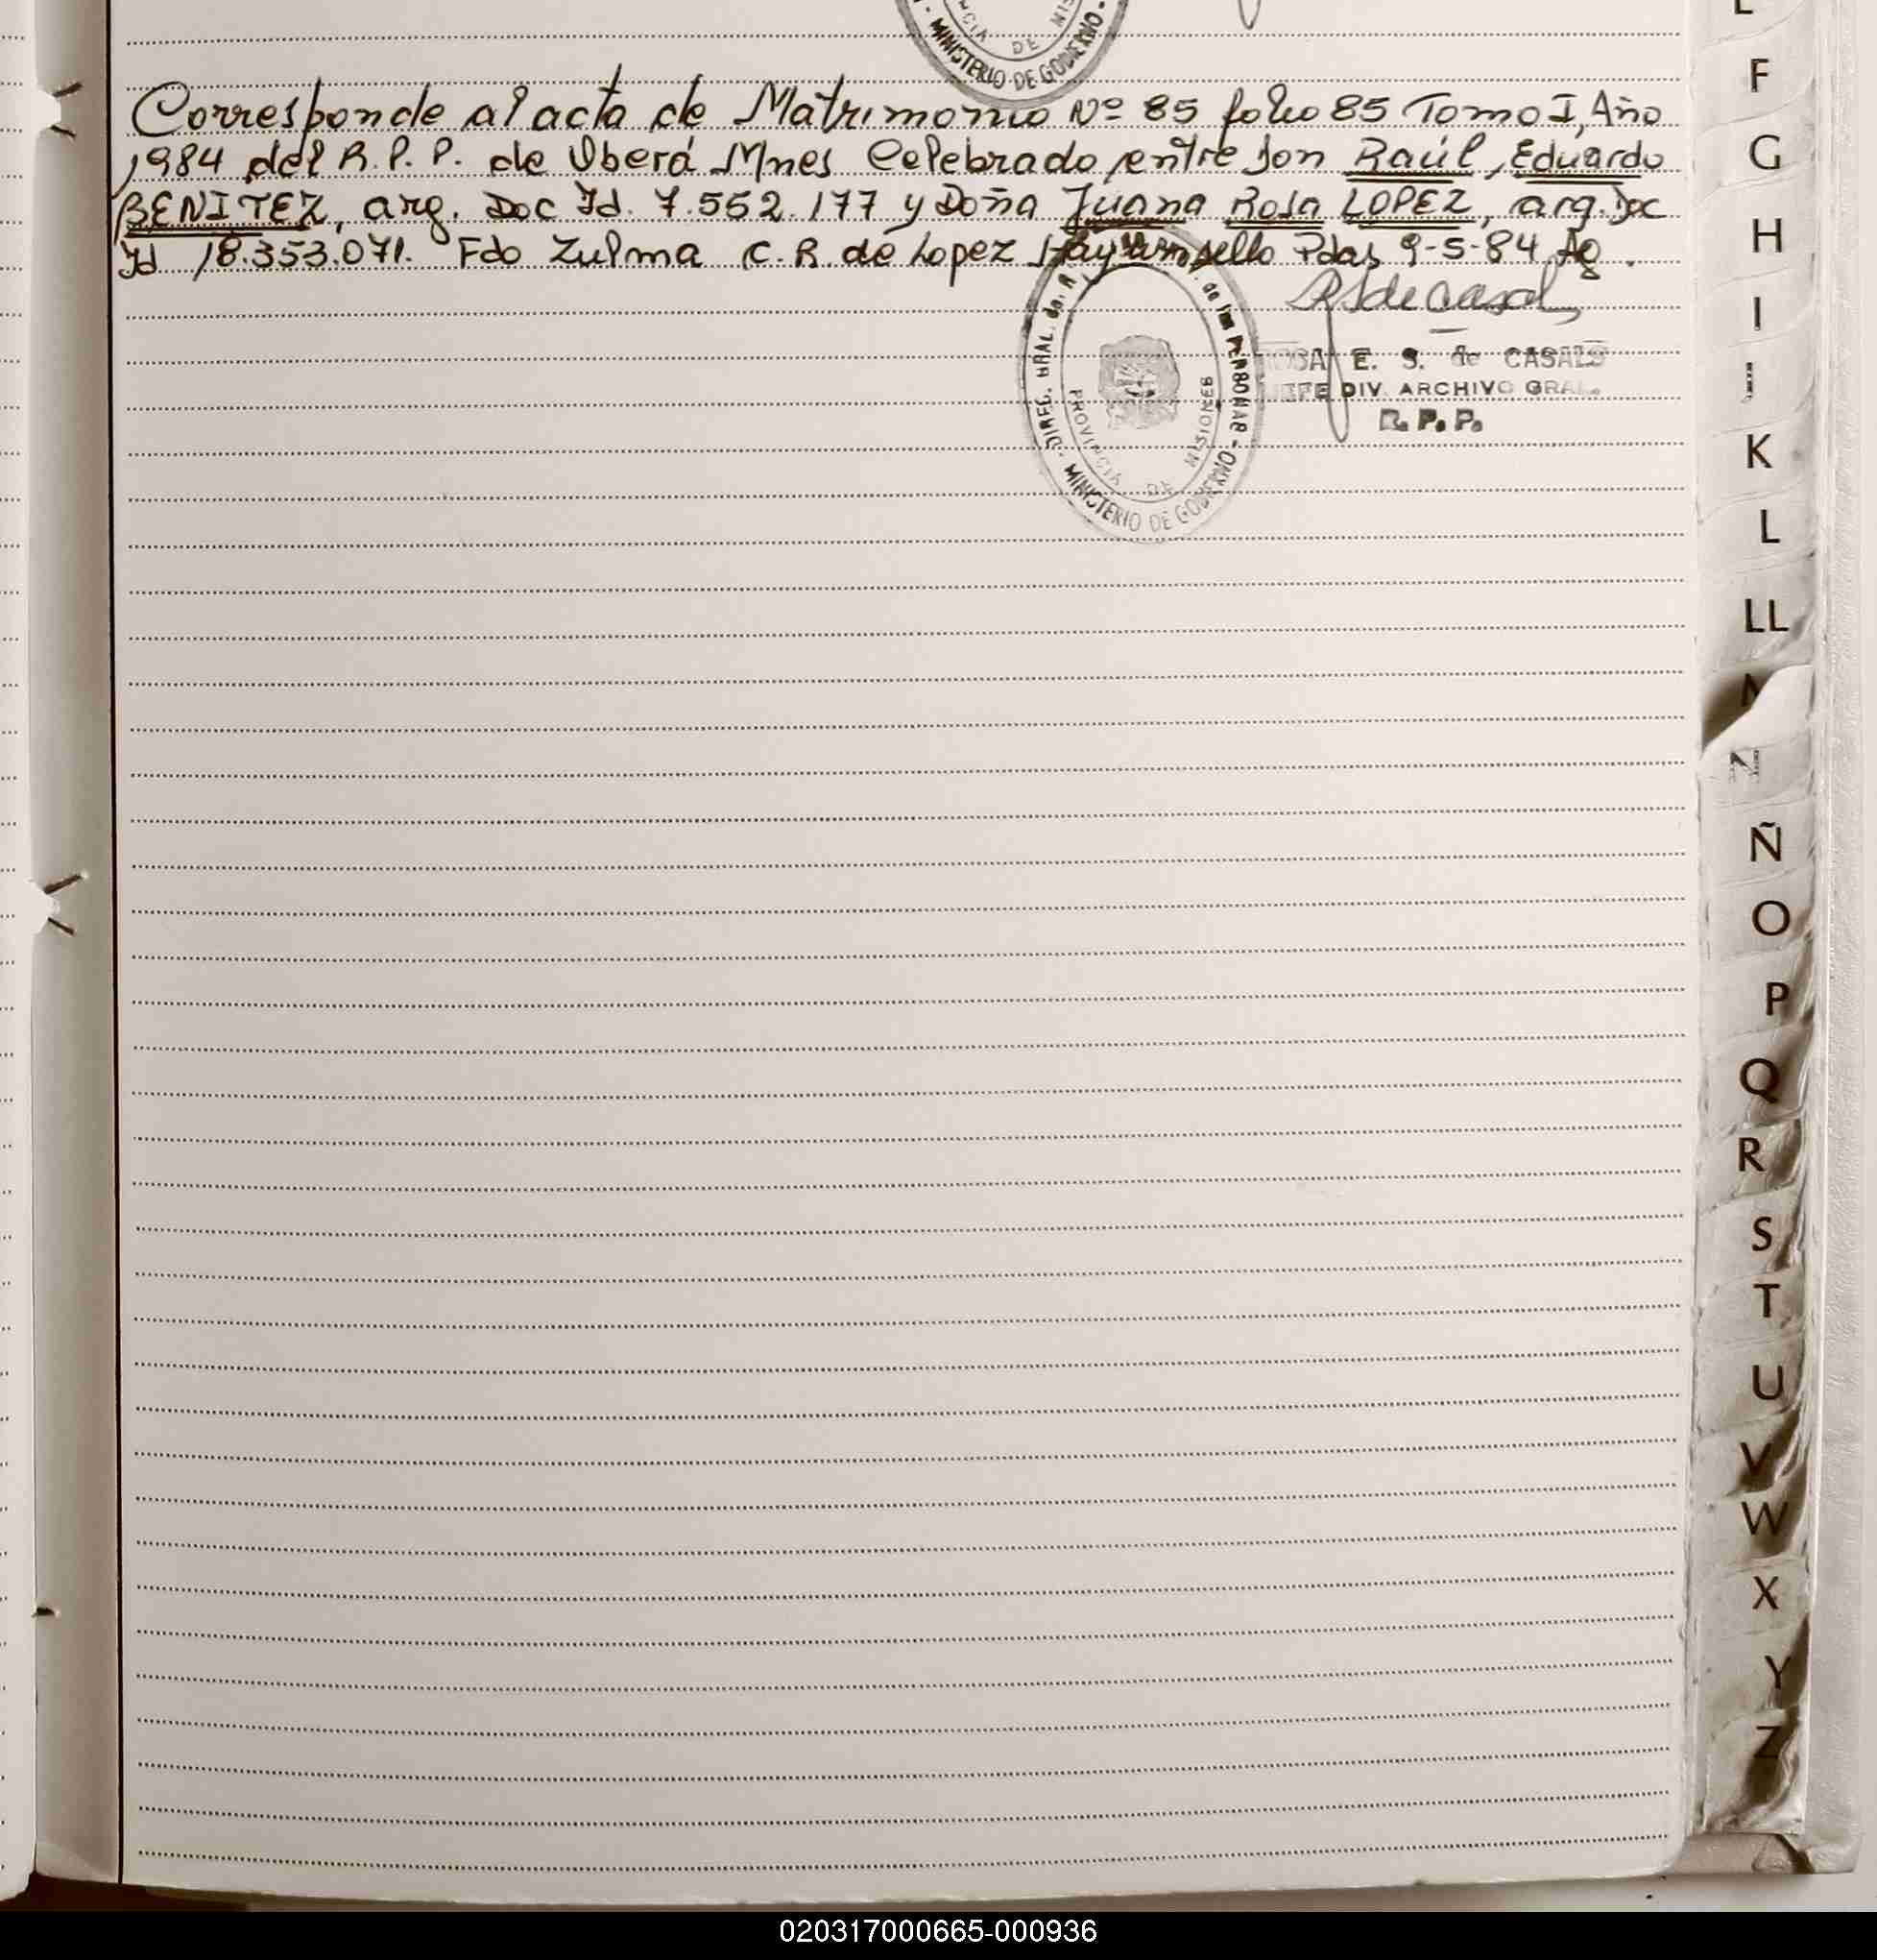 CIA DE MIS
MINISTERIO DE GOBIERNO
Corresponde al acta de Matrimonio Nº 85 folio 85 Tomo I, Año
1984 del R. P. P. de Oberá Mnes Celebrado entre Don Raúl, Eduardo
BENITEZ, arg. Doc Id. 7.552.177 y Doña Juana Rosa LOPEZ, arg. Doc
Id 18.353.071. Fdo Zulma C. R. de Lopez Hay un sello Pdas 9-5-84
E. S. de CASALS
JEFE DIV. ARCHIVO GRAL.
R. P. P.
DIREC. GRAL. de. R de las PERSONAS
PROVINCIA DE MISIONES
MINISTERIO DE GOBIERNO
F
G
H
I
K
L
LL
N
Ñ
O
P
Q
R
S
T
U
V
W
X
Y
Z
020317000665-000936